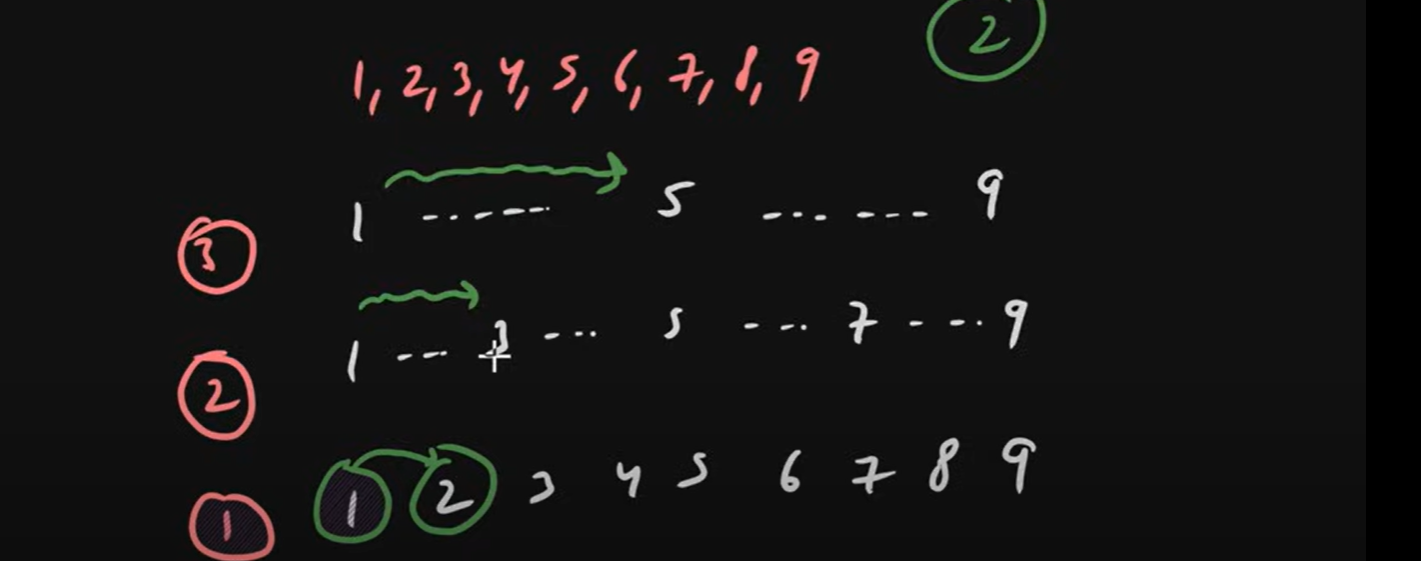 2
1, 2, 3, 4, 5, 6, 7, 8, 9
3 1 ------ 5 ------ 9
2 1 --- 3 --- 5 --- 7 --- 9
1 1 2 3 4 5 6 7 8 9